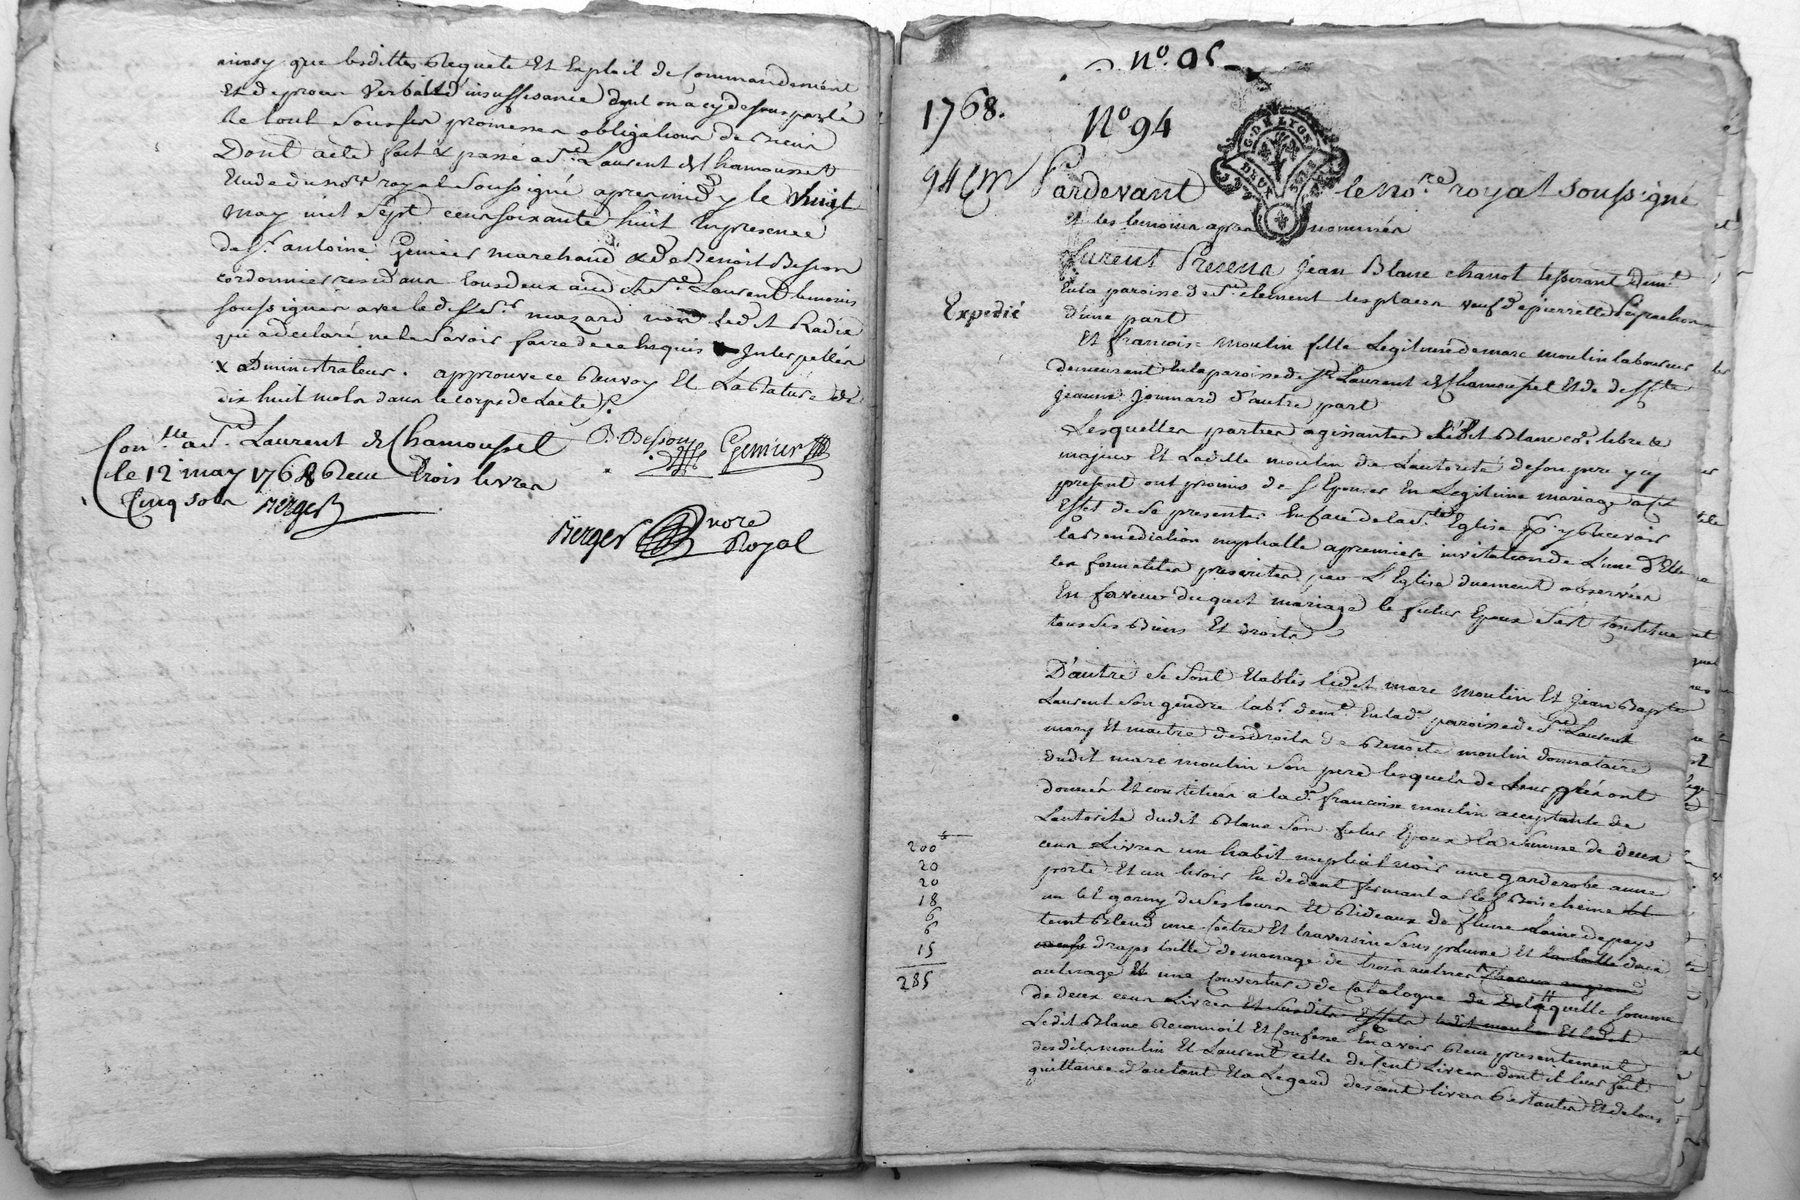 ainsy que lesdittes Requete Et Exploit de Commandement
Et de proces Verbal d'insuffisance dont on a cy dessus parlé
le tout sous les promesses obligations de Biens
Dont acte fait & passé a St. Laurent de Chamousset
Etude du no.re royal soussigné apres midy le huit
may mil sept cens soixante huit En presence
de Sr. antoine Gemier marchand & de Benoit Besson
cordonnier residans tous deux aud. St. Laurent temoins
soussignés avec led. Sr. mazard non ledit
qui a declaré ne le savoir faire de ce Enquis Interpellés
x administrateur. approuvé ce Renvoy Et La Rature de
dix huit mots dans le corps de Lacte
Con.lle a St. Laurent de Chamousset
B. Besson Gemier
le 12 may 1768 Reçu trois livres
Cinq sols Berger
Berger no.re
Royal
No. 95
1768.
No 94
G. DE LYON
DEUX SOLS
94 Cm Pardevant le no.re royal soussigné
et les temoins apres nommés
furent Presens Jean Blanc chanot tisserant dem.t
En la paroisse de St. clement les places veuf de pierrette
Expedié
d'une part
Et francoise moulin fille Legitime de marc moulin laboureur
demeurant En la paroisse de St. Laurent de Chamousset Et de deff.te
jeanne Jomard d'autre part
Lesquelles parties agissantes Ledit Blanc co.e libre &
majeur Et Laditte moulin de Lautorité de son pere y cy
present ont promis de s'Epouser En Legitime mariage a cet
Effet de se presenter En face de la Ste. Eglise pr. y Recevoir
la Benediction nuptialle a premiere invitation de L'une d'Elle
les formalites prescrites par L'Eglise duement observées
En faveur duquel mariage le futur Epoux s'est constitué
tous ses Biens Et droits
D'autre se sont Etablis ledit marc moulin Et Jean Bapte
Laurent son gendre lab.r dem.t En lad. paroisse de St. Laurent
mary Et maitre des droits de Benoite moulin donnataire
dudit marc moulin son pere lesquels de Leur gré ont
donnés Et constitués a lad. francoise moulin acceptante de
Lautorité dudit Blanc son futur Epoux la somme de deux
cens Livres un habit nuptial noir une garderobe a une
porte Et un tiroir En dedant fermant a clef Bois chene
un lit garny de ses tours Et Rideaux de flune laine de pays
teint Bleud une coitre Et traversin sans plume Et
draps toille de menage de trois aulnes
aulnage Et une Couverture de Catalogne de Laquelle somme
de deux cens Livres Et susdits Effets ledit moulin Et ledit
Ledit Blanc Reconnoit Et confesse En avoir Reçu presentement
desdits moulin Et Laurent celle de Cent Livres dont il leur fait
quittance d'autant Et a Legard des cent livres Restantes Et de tous
200
20
20
18
6
6
15
285